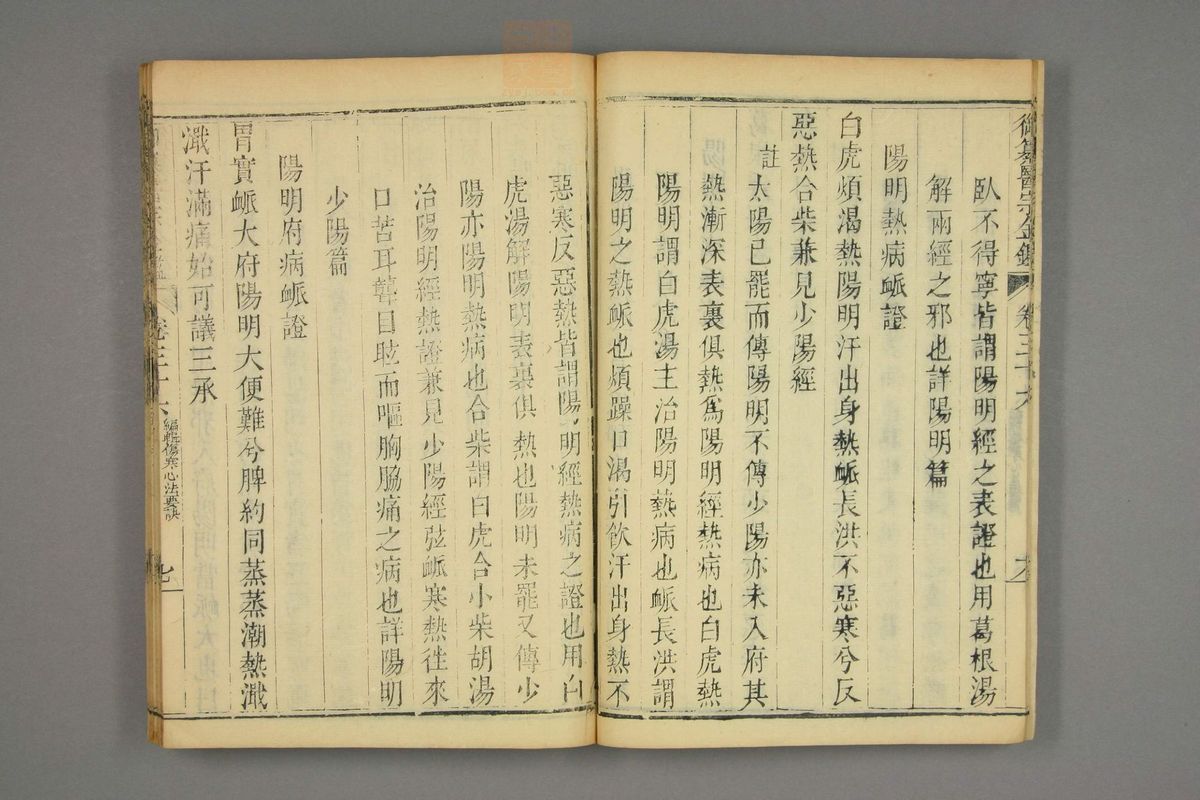 御纂醫宗金鑑 卷三十六
臥不得寧皆謂陽明經之表證也用葛根湯
解兩經之邪也詳陽明篇
陽明熱病脈證
白虎煩渴熱陽明汗出身熱脈長洪不惡寒兮反
惡熱合柴兼見少陽經
註太陽已罷而傳陽明不傳少陽亦未入府其
熱漸深表裏俱熱爲陽明經熱病也白虎熱
陽明謂白虎湯主治陽明熱病也脈長洪謂
陽明之熱脈也煩躁口渴引飲汗出身熱不
惡寒反惡熱皆謂陽明經熱病之證也用白
虎湯解陽明表裏俱熱也陽明未罷又傳少
陽亦陽明熱病也合柴謂白虎合小柴胡湯
治陽明經熱證兼見少陽經弦脈寒熱往來
口苦耳聾目眩而嘔胸脇痛之病也詳陽明
少陽篇
陽明府病脈證
胃實脈大府陽明大便難兮脾約同蒸蒸潮熱濈
濈汗滿痛始可議三承
卷三十六 編輯傷寒心法要訣 七